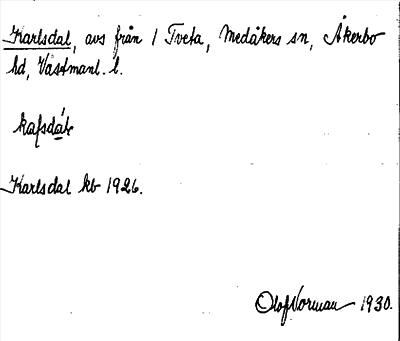 Karlsdal, avs från 1 Tveta, Medåkers sn, Åkerbo
hd, Västmanl. l.
Karlsdal kb 1926.
Olof Norman 1930.